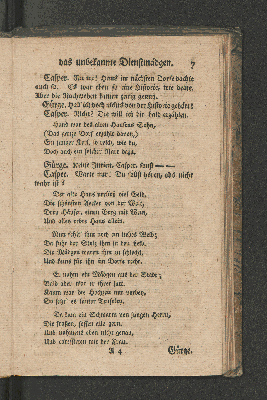 das unbekannte Dienstmädgen. 7
Casper. Hans im nächsten Dorfe dachte
auch so. Es war eben so eine Historie, wie deine.
Aber die Nachwehen kamen garstig
Görge. Hab ich doch nichts von der Historie gehört!
Casper. Nicht? Die will ich dir bald erzählen.
Hans war des alten Hansens Sohn,
(Das ganze Dorf erzählt davon,)
Ein junger Kerl, so reich, wie du,
Doch auch ein solcher Narr dazu.
Görge. Keine Casper, sonst — —
Casper. Warte nur. Du sollst hören, obs nicht
wahr ist!
Der alte Hans verließ viel Geld,
Die schönsten Aecker von der Welt,
Drey Häuser, einen Berg mit Wein,
Und alles erbte Hans allein.
Nun fehlt ihm noch ein liebes Weib;
Da fuhr der Stolz ihm in den Leib.
Die Mädgen waren ihm zu schlecht,
Und keins für ihn im Dorfe recht.
Er nahm ein Mädgen aus der Stadt;
Bald aber war er ihrer satt.
Kaum war die Hochzeit nur vorbey,
So gieng es
Da kam ein Schwarm von jungen Herrn,
Die fraßen, soffen alle gern,
Und nahmens eben nicht genau,
Und caressirten mit der Frau.
A 4 Görge.